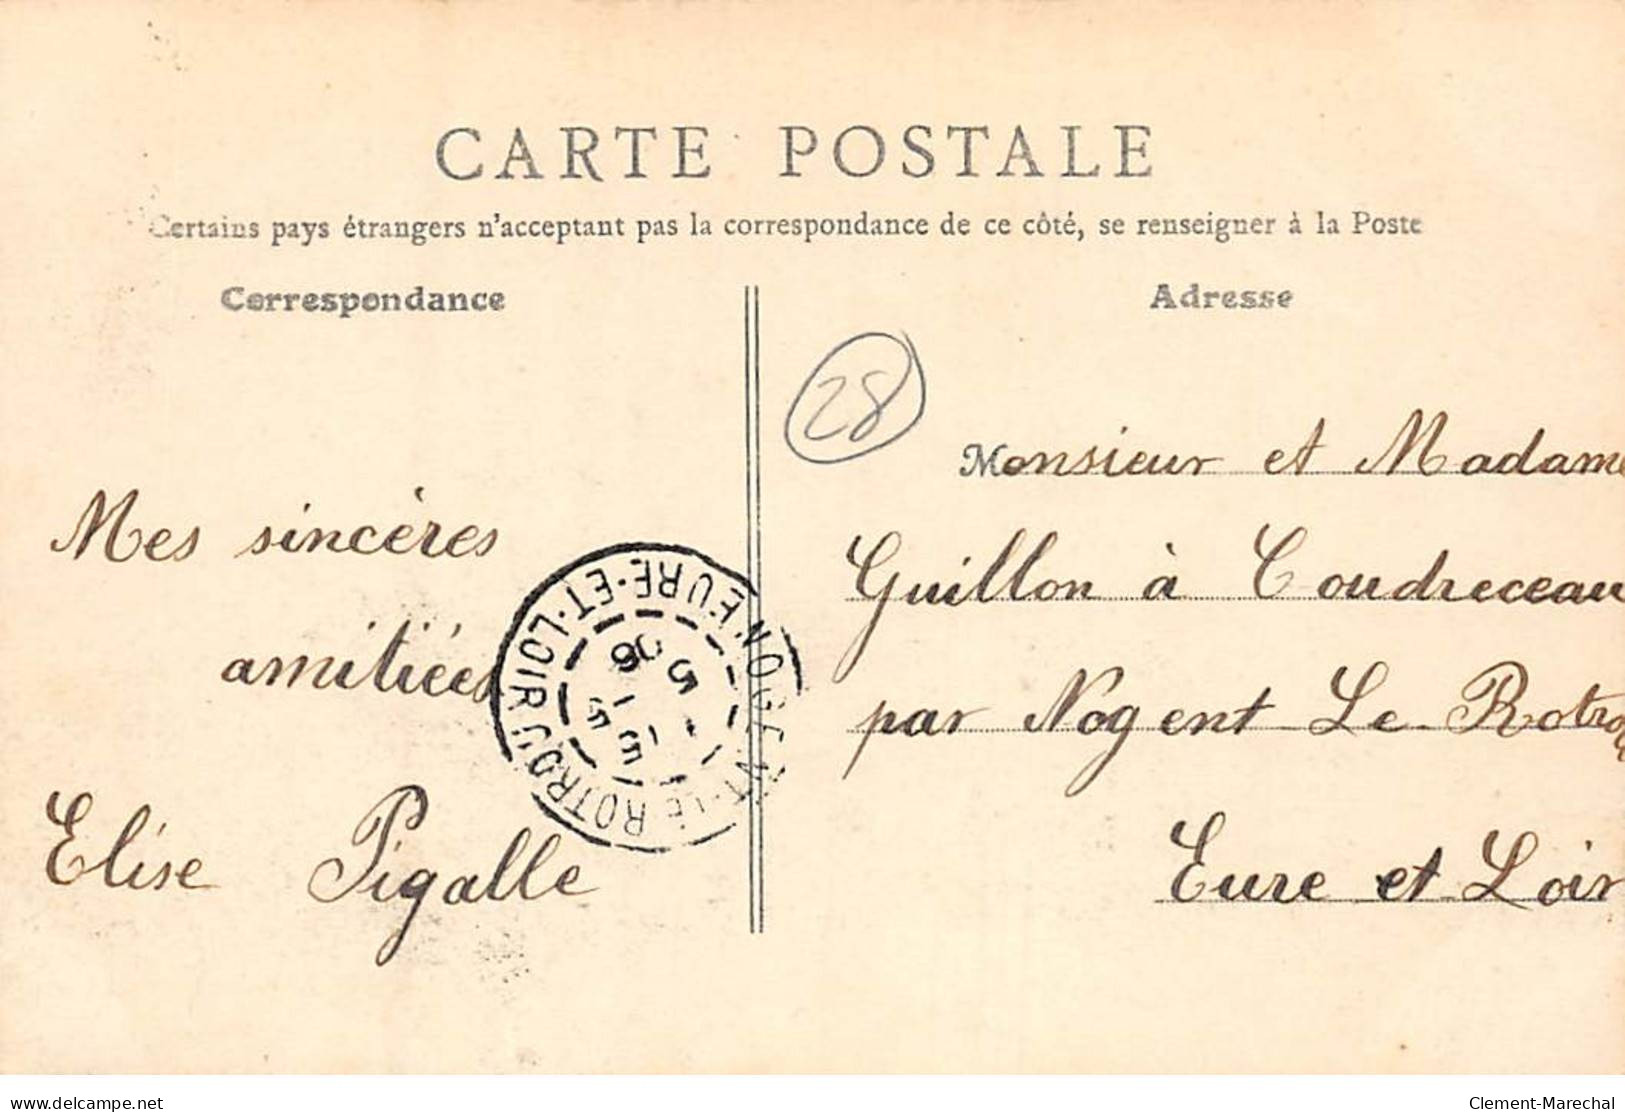 CARTE POSTALE
Certains pays étrangers n'acceptant pas la correspondance de ce côté, se renseigner à la Poste
Correspondance
Adresse
28
Mes sincères
amitiées
Elise Pigalle
NOGENT-LE-ROTROU EURE-ET-LOIR
Monsieur et Madame
Guillon à Coudreceau
par Nogent Le Rotrou
Eure et Loir
www.delcampe.net
Clement-Marechal